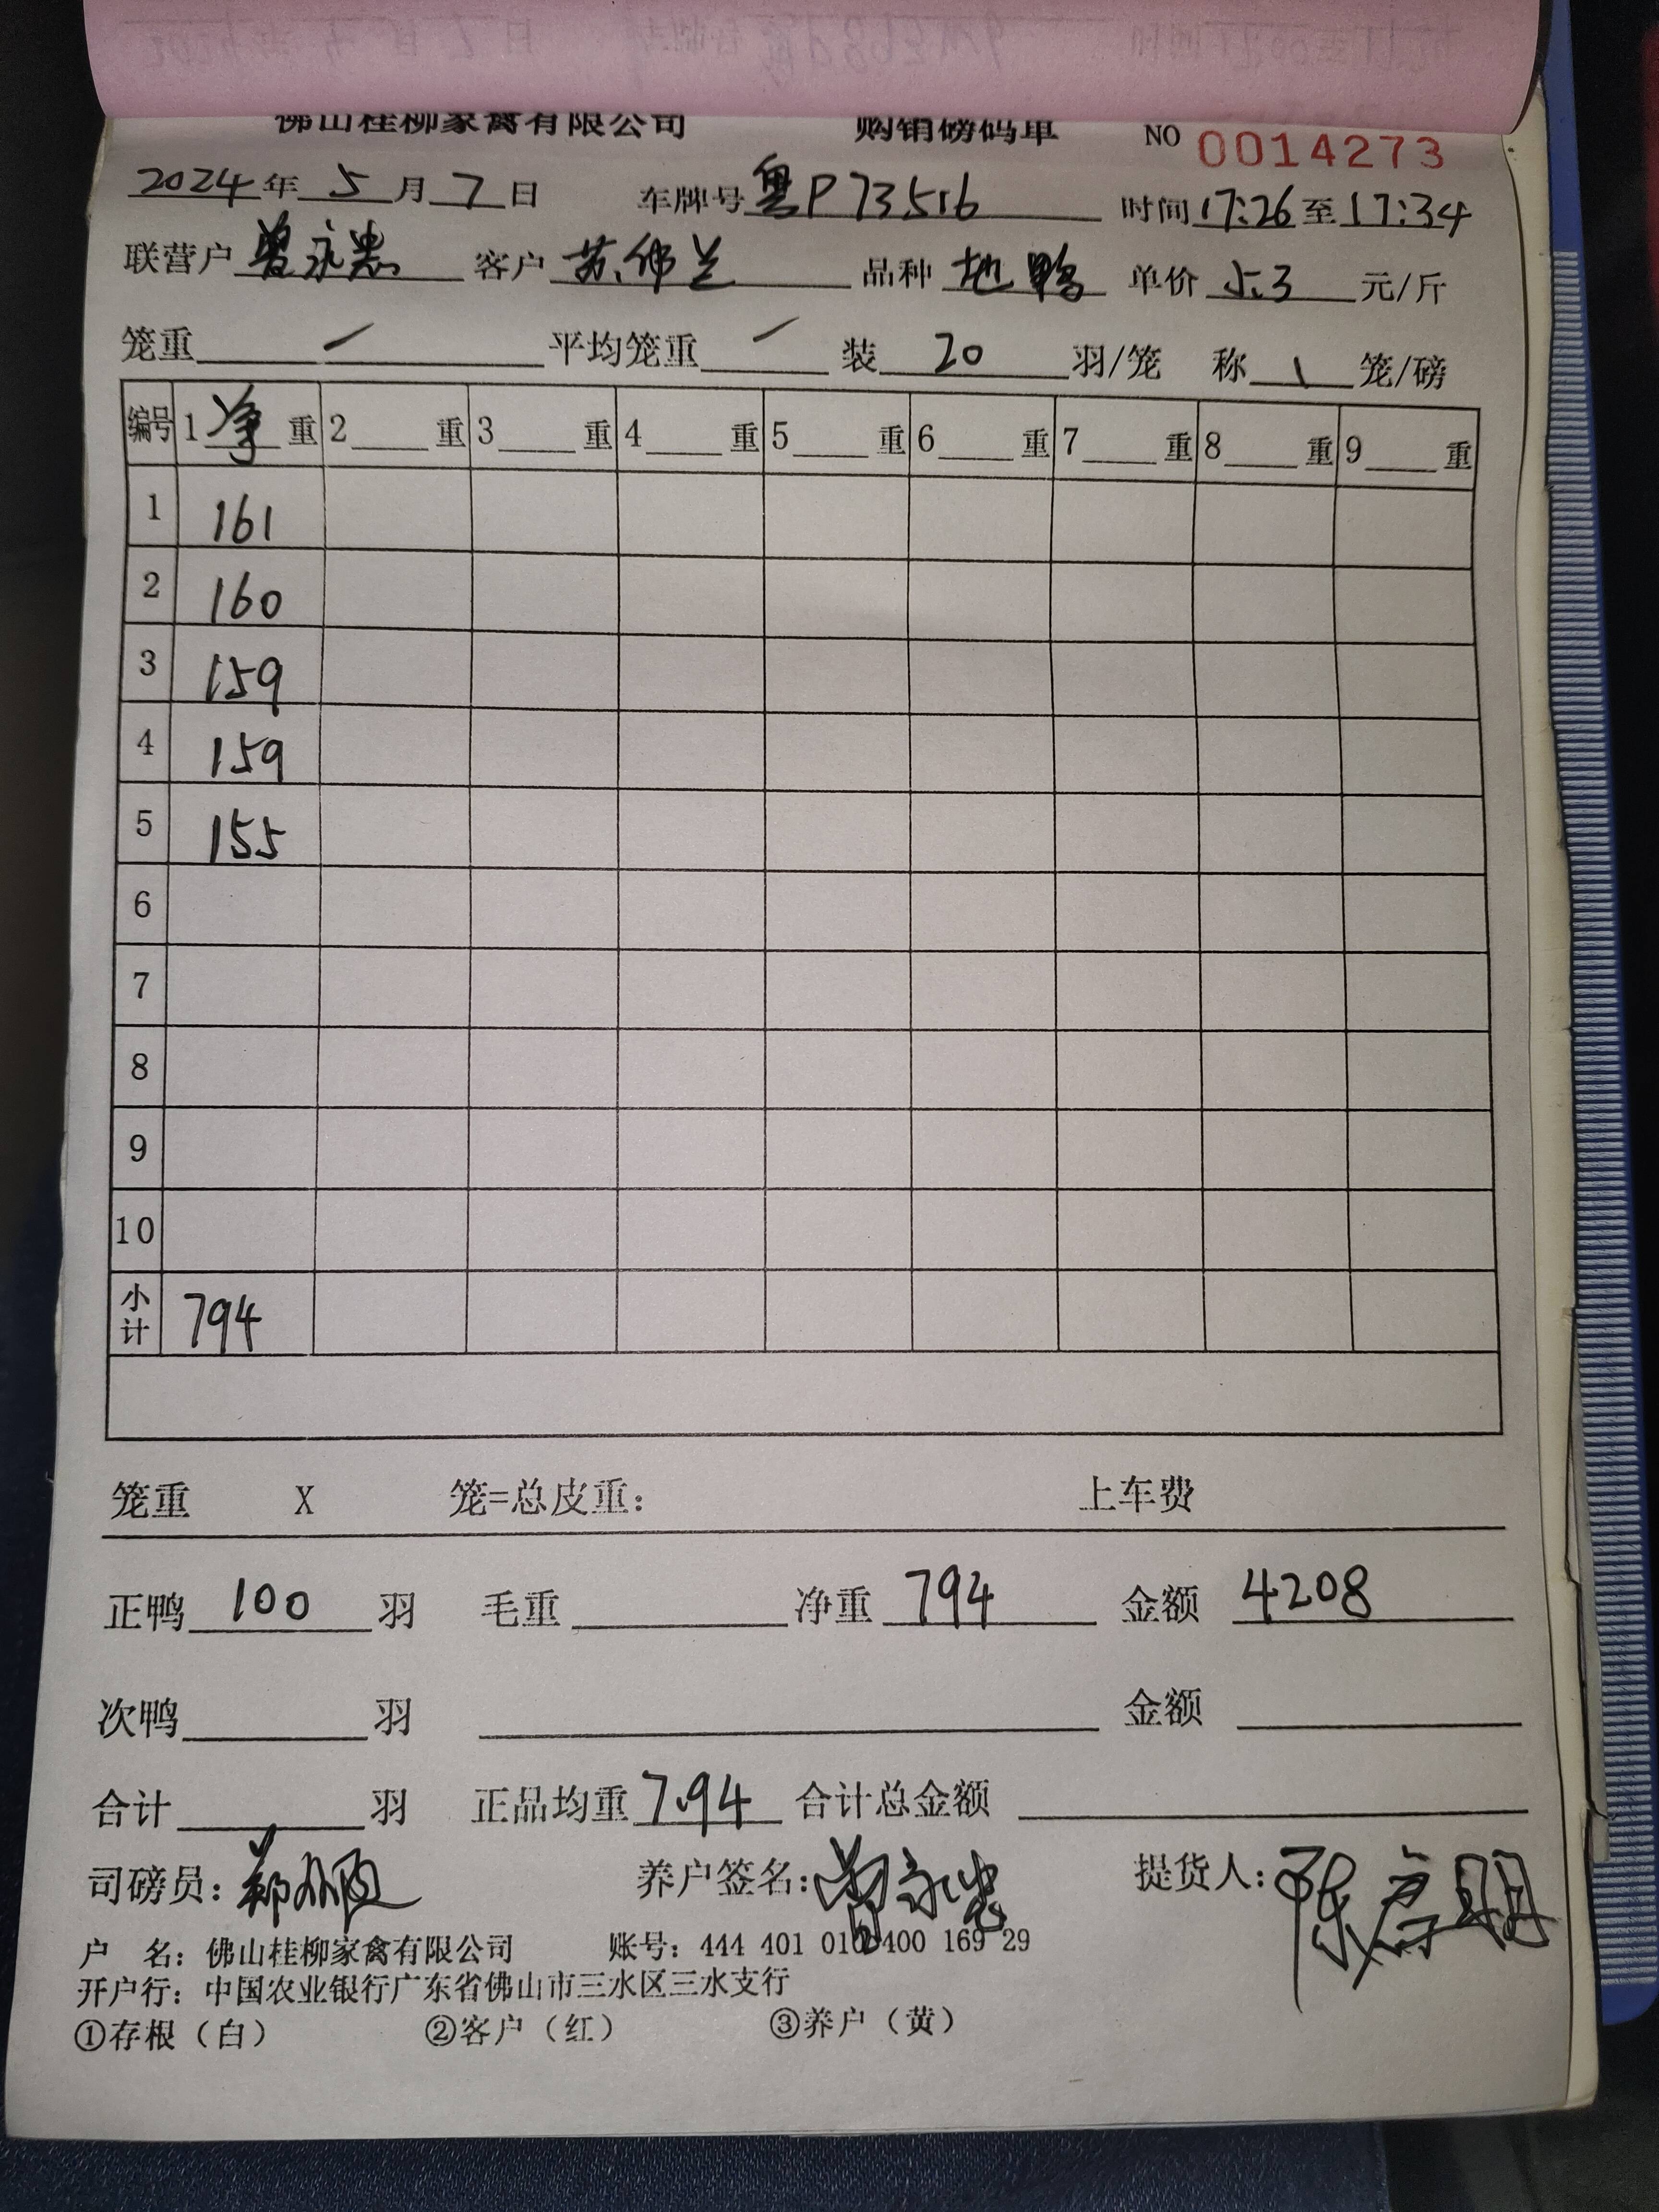 佛山桂柳家禽有限公司 购销磅码单 NO 0014273
2024年 5月 7日 车牌号 粤P73516 时间 17:26 至 17:34
联营户 曾永忠 客户 苏佛兰 品种 地鸭 单价 5.3 元/斤
笼重 / 平均笼重 / 装 20 羽/笼 称 1 笼/磅
编号 1 净 重 2 重 3 重 4 重 5 重 6 重 7 重 8 重 9 重
1 161
2 160
3 159
4 159
5 155
6
7
8
9
10
小计 794
笼重 X 笼=总皮重: 上车费
正鸭 100 羽 毛重 净重 794 金额 4208
次鸭 羽 金额
合计 羽 正品均重 7.94 合计总金额
司磅员: 养户签名: 曾永忠 提货人:
户 名: 佛山桂柳家禽有限公司 账号: 444 401 010 400 169 29
开户行: 中国农业银行广东省佛山市三水区三水支行
①存根(白) ②客户(红) ③养户(黄)